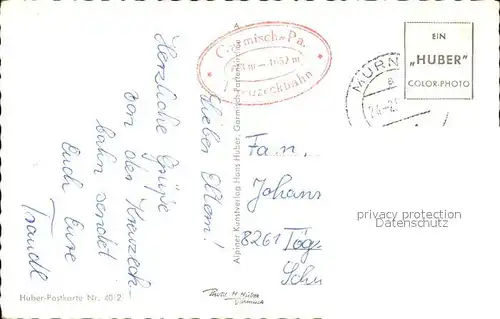 Garmisch-Pa.
m - 1652 m
Kreuzeckbahn
EIN
„HUBER”
COLOR-PHOTO
MURN
Lieben Eltern!
Herzliche Grüße
von der Kreuzeck-
bahn sendet
Euch Eure
Traudl
Fam.
Johann
8261 Tög
Schu
privacy protection
Datenschutz
Alpiner Kunstverlag Hans Huber, Garmisch-Partenkirchen
Huber-Postkarte Nr. 4012
Photo H. Huber
Garmisch